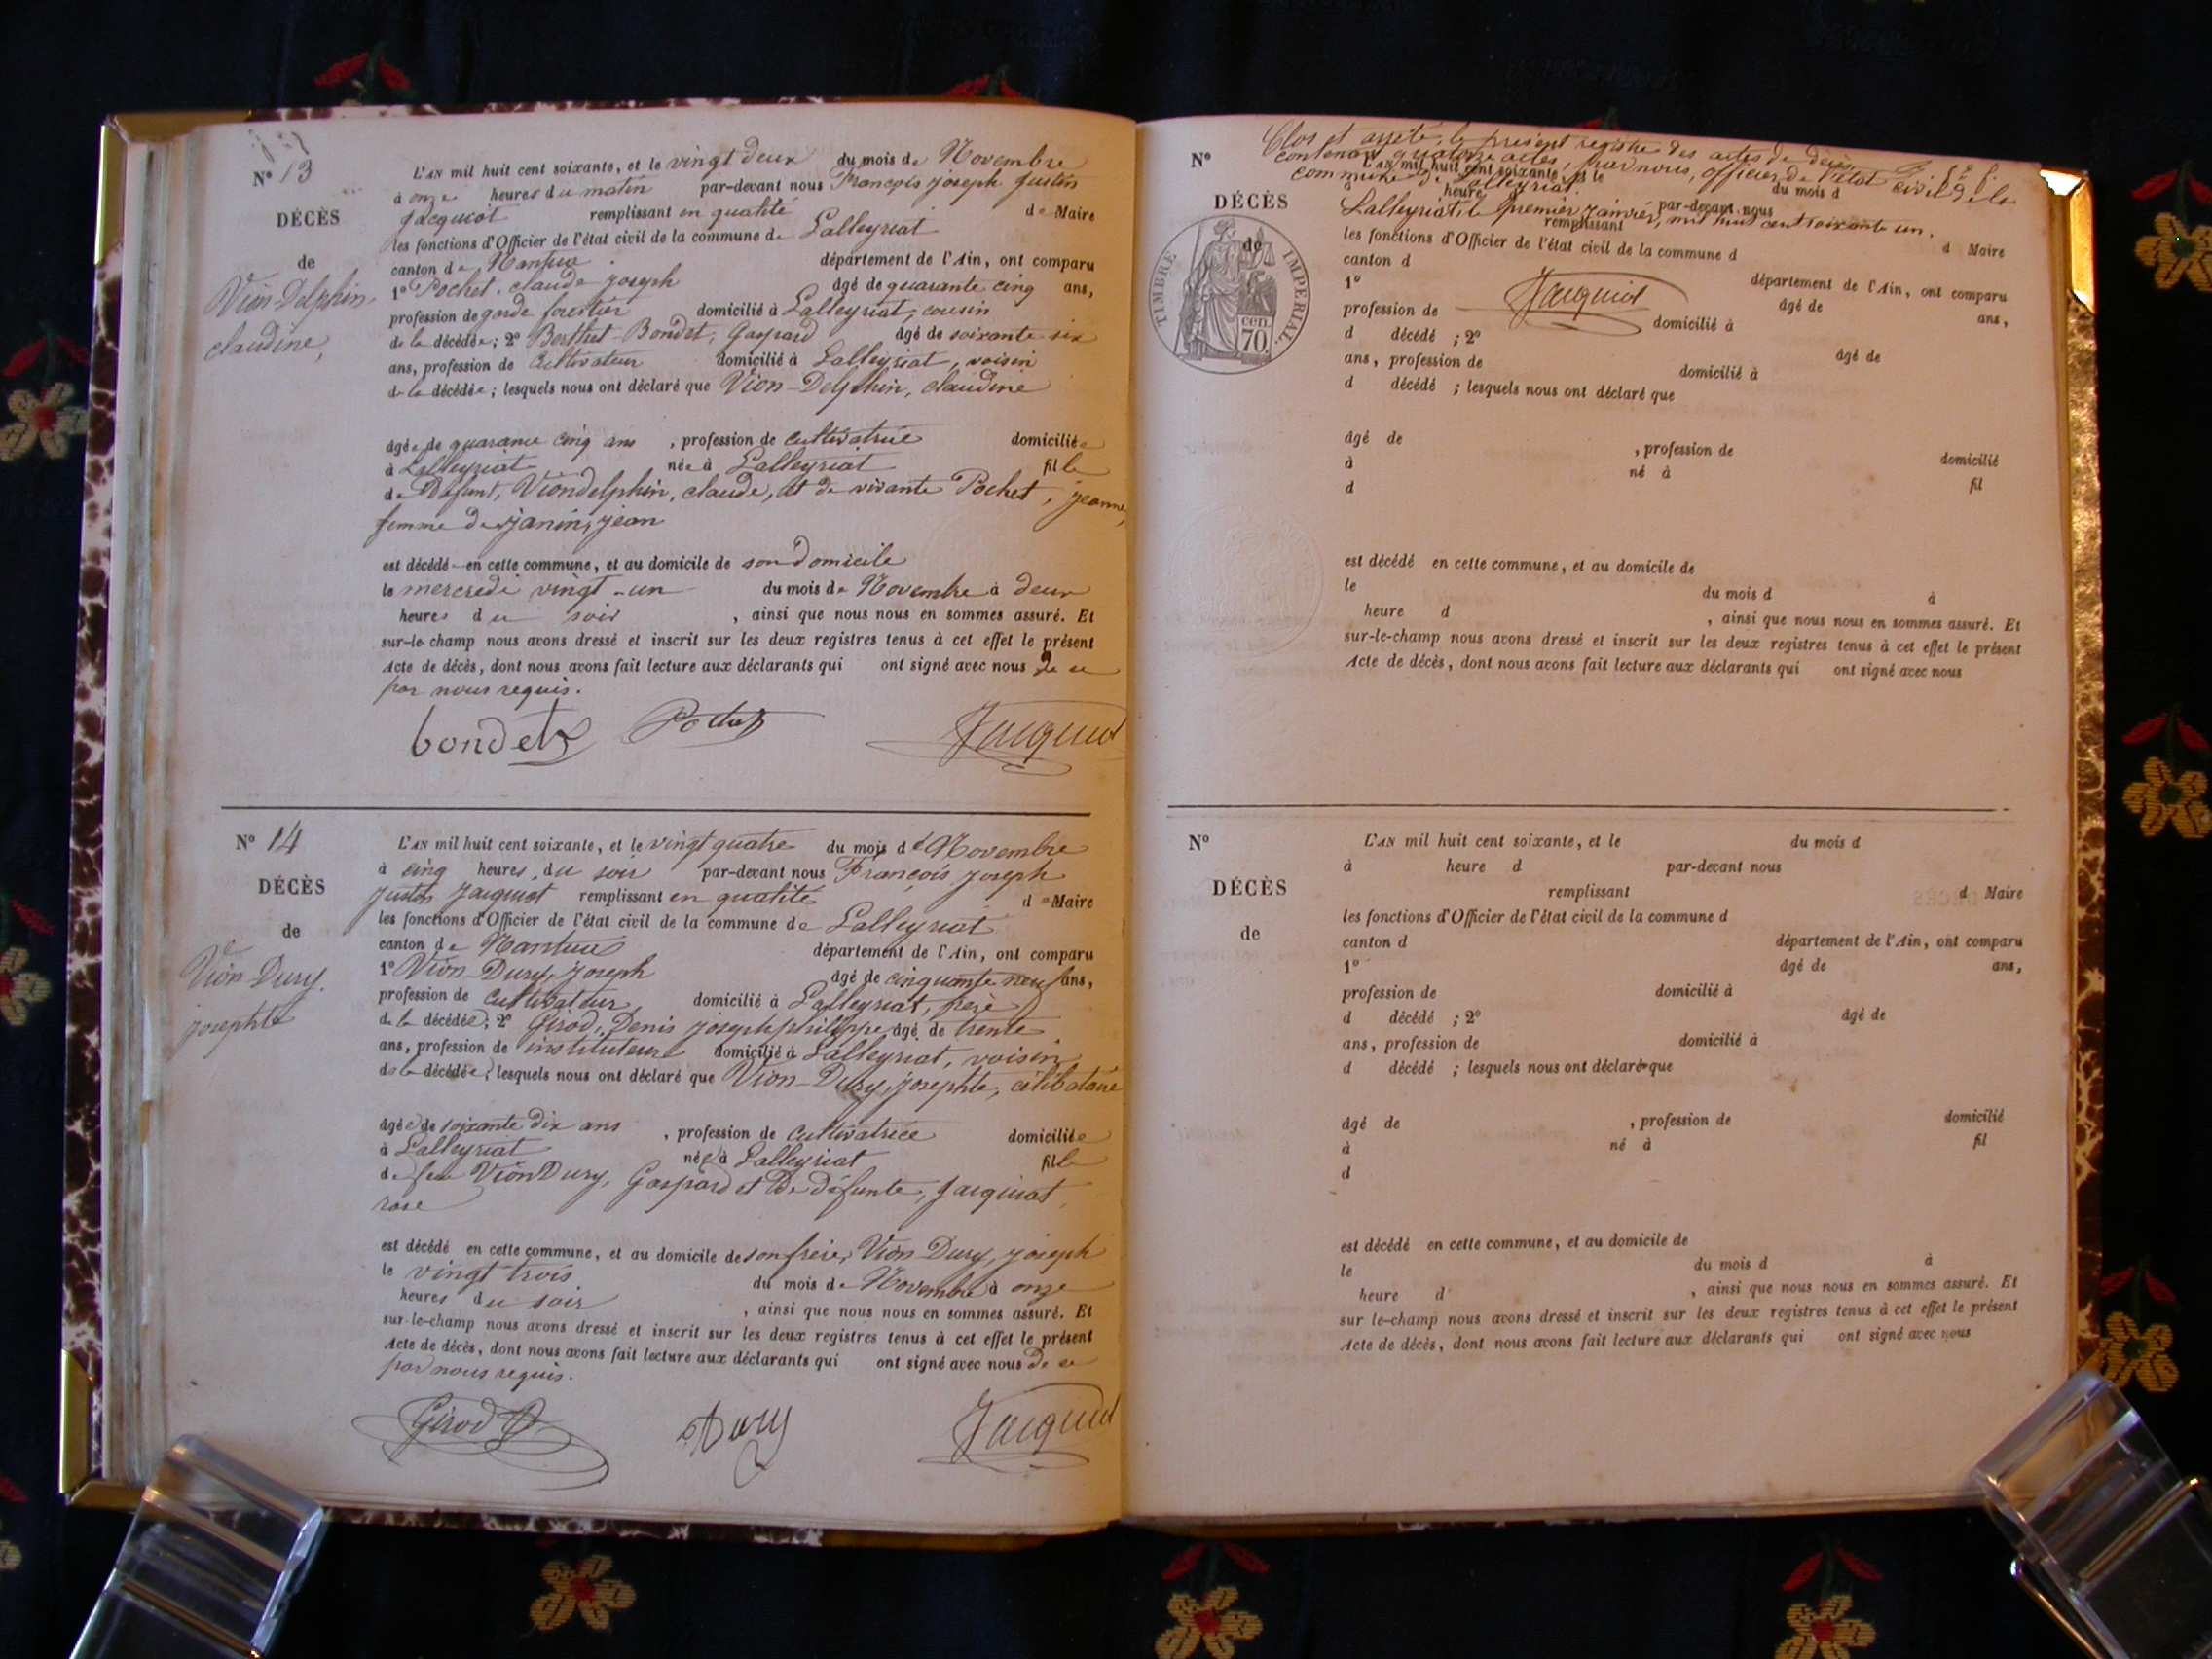 Nº 13
DÉCÈS
de
Vion-Delphin,
claudine,
L'AN mil huit cent soixante, et le vingt deux du mois de Novembre
à onze heures du matin par-devant nous François joseph justin
Jacquiot remplissant en qualité de Maire
les fonctions d'Officier de l'état civil de la commune de Lalleyriat
canton de Nantua département de l'Ain, ont comparu
1º Pochet, claude joseph âgé de quarante cinq ans,
profession de garde forestier domicilié à Lalleyriat, cousin
de la décédée; 2º Berthet Bondet, Gaspard âgé de soixante six
ans, profession de Cultivateur domicilié à Lalleyriat, voisin
de la décédée; lesquels nous ont déclaré que Vion-Delphin, claudine
âgée de quarante cinq ans, profession de cultivatrice domiciliée
à Lalleyriat née à Lalleyriat fille
de Défunt, Viondelphin, claude, et de vivante Pochet, jeanne,
femme de janin, jean
est décédé en cette commune, et au domicile de son Domicile
le mercredi vingt-un du mois de Novembre à deux
heures du soir, ainsi que nous nous en sommes assuré. Et
sur-le-champ nous avons dressé et inscrit sur les deux registres tenus à cet effet le présent
Acte de décès, dont nous avons fait lecture aux déclarants qui ont signé avec nous de ce
par nous requis.
bondet Pochet Jacquiot
Nº 14
DÉCÈS
de
Vion-Dury.
josephte
L'AN mil huit cent soixante, et le vingt quatre du mois de Novembre
à cinq heures du soir par-devant nous François joseph
justin Jacquiot remplissant en qualité de Maire
les fonctions d'Officier de l'état civil de la commune de Lalleyriat
canton de Nantua département de l'Ain, ont comparu
1º Vion-Dury, joseph âgé de cinquante neuf ans,
profession de cultivateur, domicilié à Lalleyriat, frère
de la décédée; 2º Girod, Denis joseph philippe, âgé de trente
ans, profession de instituteur domicilié à Lalleyriat, voisin
de la décédée; lesquels nous ont déclaré que Vion-Dury, josephte, célibataire
âgée de soixante dix ans, profession de cultivatrice domiciliée
à Lalleyriat née à Lalleyriat fille
de feu Vion Dury, Gaspard et De défunte, Jacquiot,
rose
est décédé en cette commune, et au domicile de son frère, Vion Dury, joseph
le vingt trois du mois de Novembre à onze
heures du soir, ainsi que nous nous en sommes assuré. Et
sur-le-champ nous avons dressé et inscrit sur les deux registres tenus à cet effet le présent
Acte de décès, dont nous avons fait lecture aux déclarants qui ont signé avec nous De ce
par nous requis.
Girod Dury Jacquiot
Clos et arrêté, le présent registre des actes de décès
contenant quatorze actes, par nous, officier de l'état civil de la
commune de Lalleyriat.
Lalleyriat, le premier janvier, mil huit cent soixante un.
Jacquiot
Nº
DÉCÈS
de
TIMBRE IMPERIAL
70 cen.
L'AN mil huit cent soixante, et le du mois d
à heure par-devant nous
remplissant d Maire
les fonctions d'Officier de l'état civil de la commune d
canton d département de l'Ain, ont comparu
1º âgé de ans,
profession de domicilié à
d décédé ; 2º âgé de
ans, profession de domicilié à
d décédé ; lesquels nous ont déclaré que
âgé de , profession de domicilié
à né à fil
d
est décédé en cette commune, et au domicile de
le du mois d à
heure d , ainsi que nous nous en sommes assuré. Et
sur-le-champ nous avons dressé et inscrit sur les deux registres tenus à cet effet le présent
Acte de décès, dont nous avons fait lecture aux déclarants qui ont signé avec nous
Nº
DÉCÈS
de
L'AN mil huit cent soixante, et le du mois d
à heure d par-devant nous
remplissant d Maire
les fonctions d'Officier de l'état civil de la commune d
canton d département de l'Ain, ont comparu
1º âgé de ans,
profession de domicilié à
d décédé ; 2º âgé de
ans, profession de domicilié à
d décédé ; lesquels nous ont déclaré que
âgé de , profession de domicilié
à né à fil
d
est décédé en cette commune, et au domicile de
le du mois d à
heure d , ainsi que nous nous en sommes assuré. Et
sur le-champ nous avons dressé et inscrit sur les deux registres tenus à cet effet le présent
Acte de décès, dont nous avons fait lecture aux déclarants qui ont signé avec nous